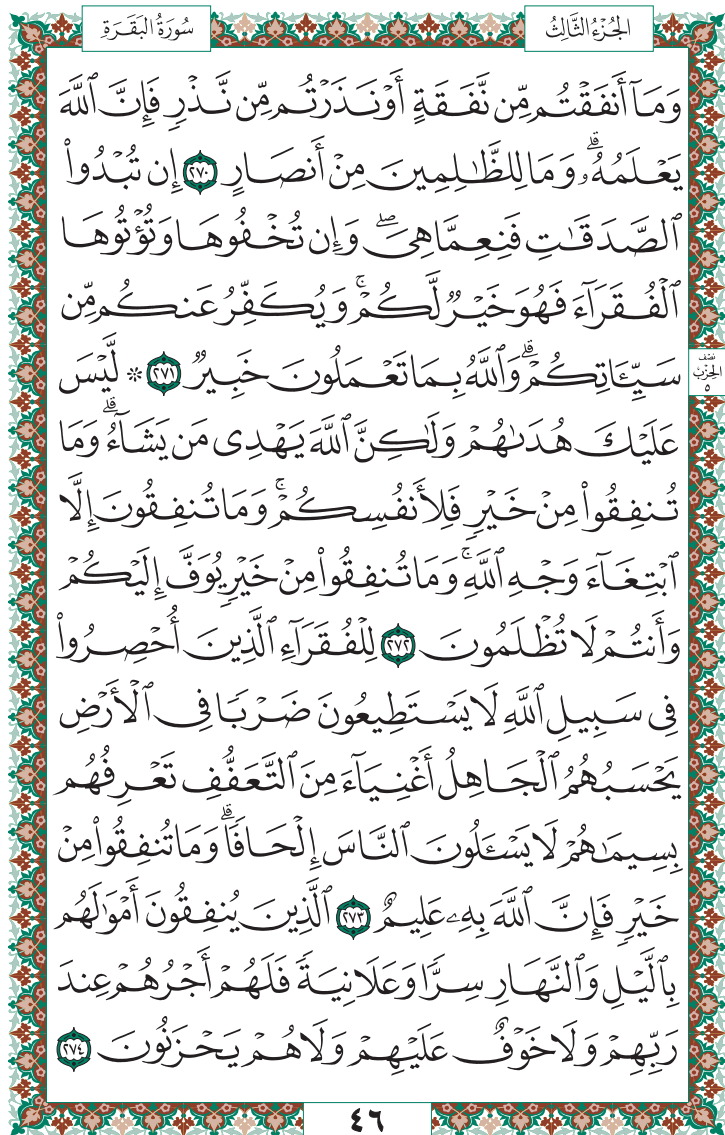 الجُزْءُ الثَّالِثُ
سُورَةُ البَقَرَةِ
وَمَآ أَنفَقْتُم مِّن نَّفَقَةٍ أَوْ نَذَرْتُم مِّن نَّذْرٍ فَإِنَّ ٱللَّهَ
يَعْلَمُهُۥۗ وَمَا لِلظَّـٰلِمِينَ مِنْ أَنصَارٍ ٢٧٠ إِن تُبْدُوا۟
ٱلصَّدَقَـٰتِ فَنِعِمَّا هِىَۖ وَإِن تُخْفُوهَا وَتُؤْتُوهَا
ٱلْفُقَرَآءَ فَهُوَ خَيْرٌ لَّكُمْۚ وَيُكَفِّرُ عَنكُم مِّن
سَيِّـَٔاتِكُمْۗ وَٱللَّهُ بِمَا تَعْمَلُونَ خَبِيرٌ ٢٧١ ۞ لَّيْسَ
نصف
الحزب
٥
عَلَيْكَ هُدَىٰهُمْ وَلَـٰكِنَّ ٱللَّهَ يَهْدِى مَن يَشَآءُۗ وَمَا
تُنفِقُوا۟ مِنْ خَيْرٍ فَلِأَنفُسِكُمْۚ وَمَا تُنفِقُونَ إِلَّا
ٱبْتِغَآءَ وَجْهِ ٱللَّهِۚ وَمَا تُنفِقُوا۟ مِنْ خَيْرٍ يُوَفَّ إِلَيْكُمْ
وَأَنتُمْ لَا تُظْلَمُونَ ٢٧٢ لِلْفُقَرَآءِ ٱلَّذِينَ أُحْصِرُوا۟
فِى سَبِيلِ ٱللَّهِ لَا يَسْتَطِيعُونَ ضَرْبًا فِى ٱلْأَرْضِ
يَحْسَبُهُمُ ٱلْجَاهِلُ أَغْنِيَآءَ مِنَ ٱلتَّعَفُّفِ تَعْرِفُهُم
بِسِيمَـٰهُمْ لَا يَسْـَٔلُونَ ٱلنَّاسَ إِلْحَافًاۗ وَمَا تُنفِقُوا۟ مِنْ
خَيْرٍ فَإِنَّ ٱللَّهَ بِهِۦ عَلِيمٌ ٢٧٣ ٱلَّذِينَ يُنفِقُونَ أَمْوَٰلَهُم
بِٱلَّيْلِ وَٱلنَّهَارِ سِرًّا وَعَلَانِيَةً فَلَهُمْ أَجْرُهُمْ عِندَ
رَبِّهِمْ وَلَا خَوْفٌ عَلَيْهِمْ وَلَا هُمْ يَحْزَنُونَ ٢٧٤
٤٦